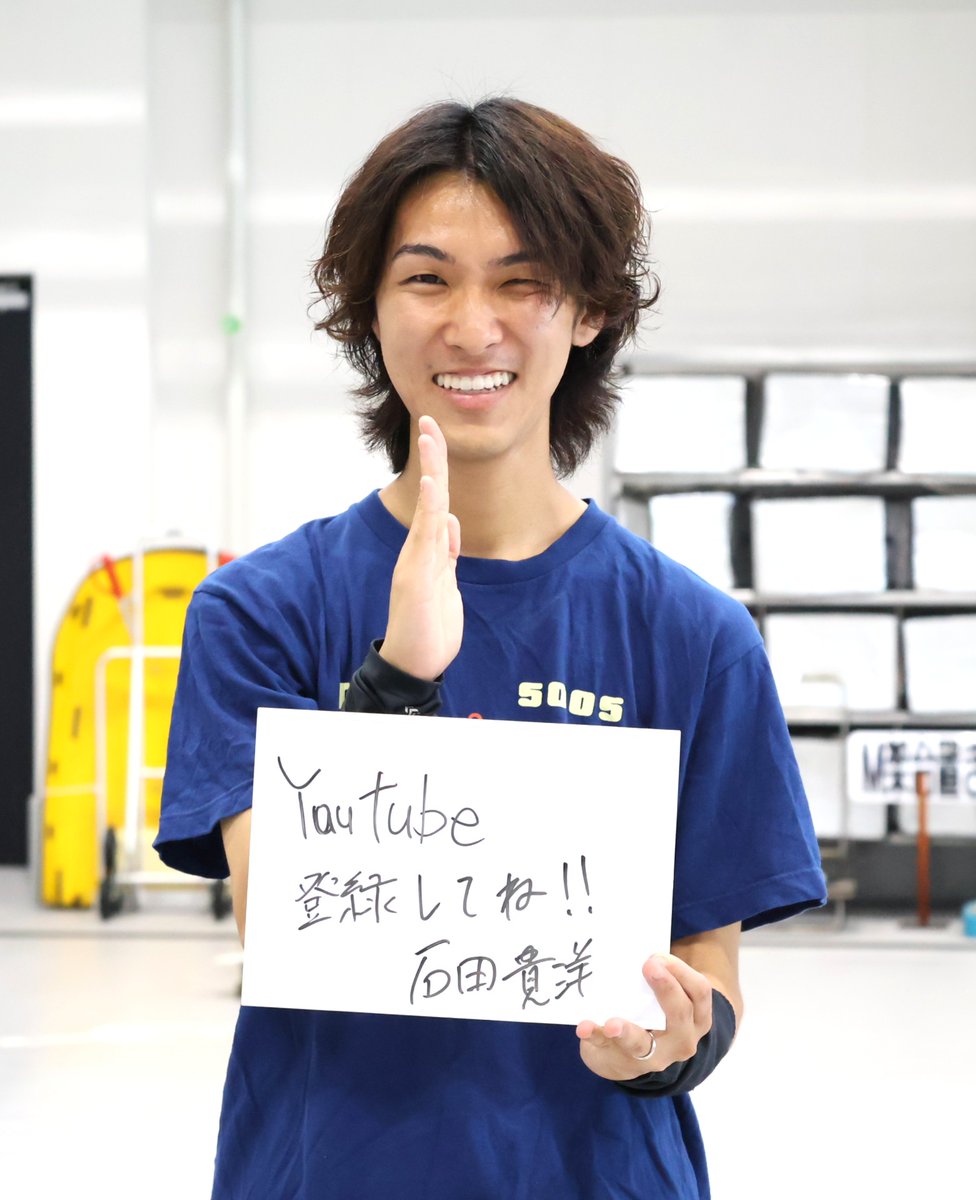 SOOS
Youtube
登録してね!!
石田貴洋